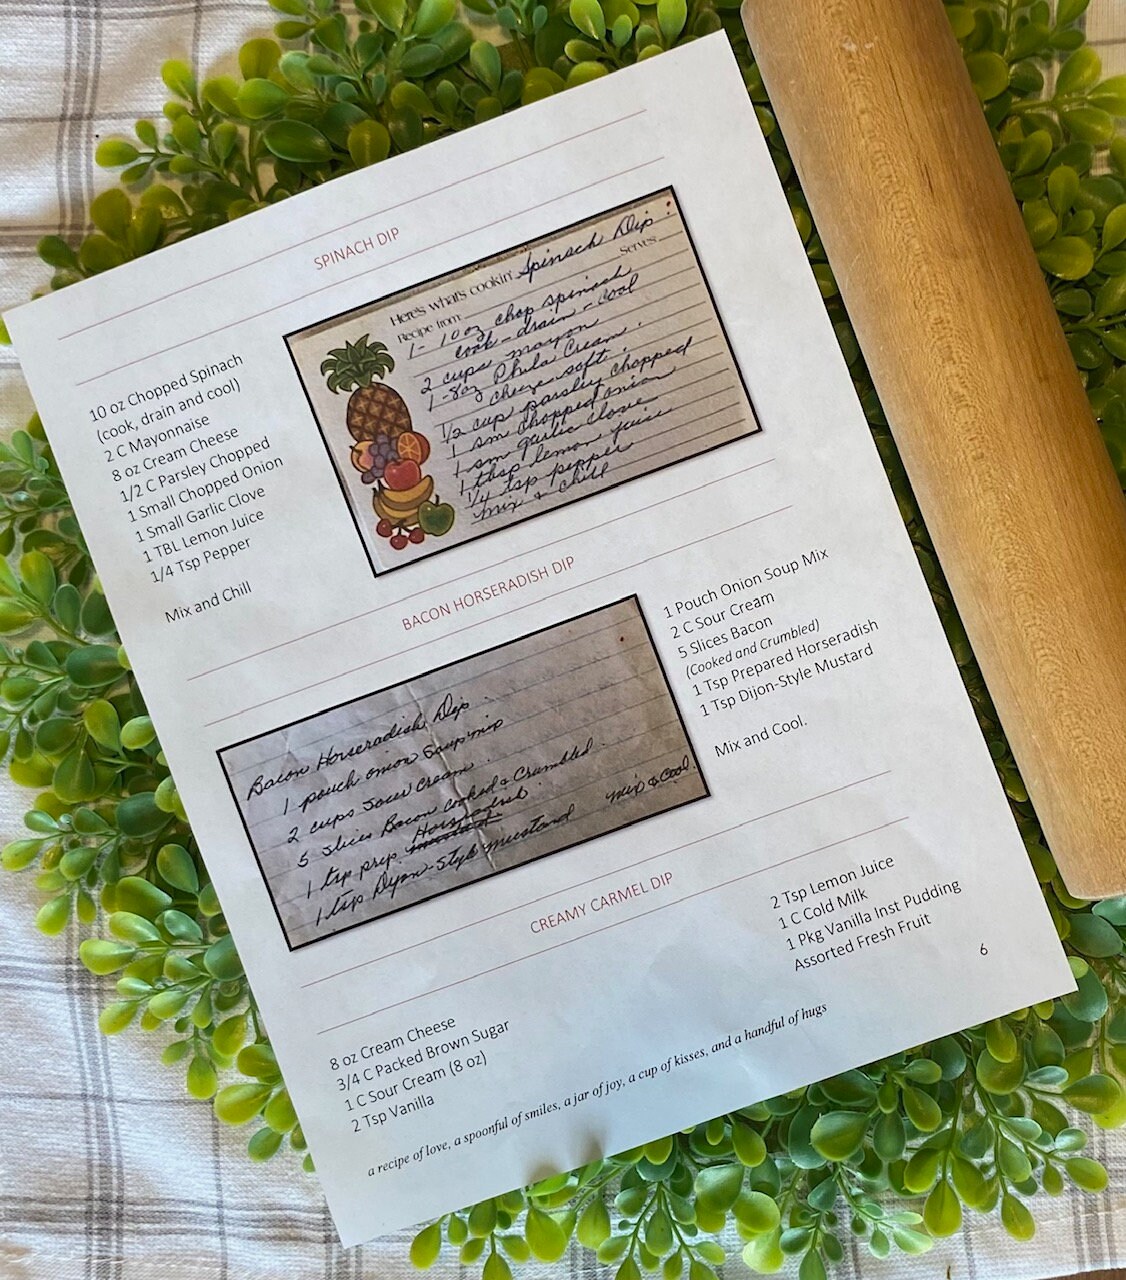 SPINACH DIP
10 oz Chopped Spinach
(cook, drain and cool)
2 C Mayonnaise
8 oz Cream Cheese
1/2 C Parsley Chopped
1 Small Chopped Onion
1 Small Garlic Clove
1 TBL Lemon Juice
1/4 Tsp Pepper
Mix and Chill
Here's what's cookin' Spinach Dip.
Recipe from Serves
1- 10 oz chop spinach
cook - drain - cool
2 cups mayon
1-8oz Phila Cream
cheese soft.
1/2 cup parsley chopped
1 sm chopped onion
1 sm garlic clove
1 tbsp lemon juice
1/4 tsp pepper
mix & chill
BACON HORSERADISH DIP
Bacon Horseradish Dip.
1 pouch onion soup mix
2 cups sour cream.
5 slices Bacon cooked & crumbled.
1 tsp prep Horseradish.
1 tsp Dijon-Style mustard mix & cool.
1 Pouch Onion Soup Mix
2 C Sour Cream
5 Slices Bacon
(Cooked and Crumbled)
1 Tsp Prepared Horseradish
1 Tsp Dijon-Style Mustard
Mix and Cool.
CREAMY CARMEL DIP
8 oz Cream Cheese
3/4 C Packed Brown Sugar
1 C Sour Cream (8 oz)
2 Tsp Vanilla
2 Tsp Lemon Juice
1 C Cold Milk
1 Pkg Vanilla Inst Pudding
Assorted Fresh Fruit
6
a recipe of love, a spoonful of smiles, a jar of joy, a cup of kisses, and a handful of hugs